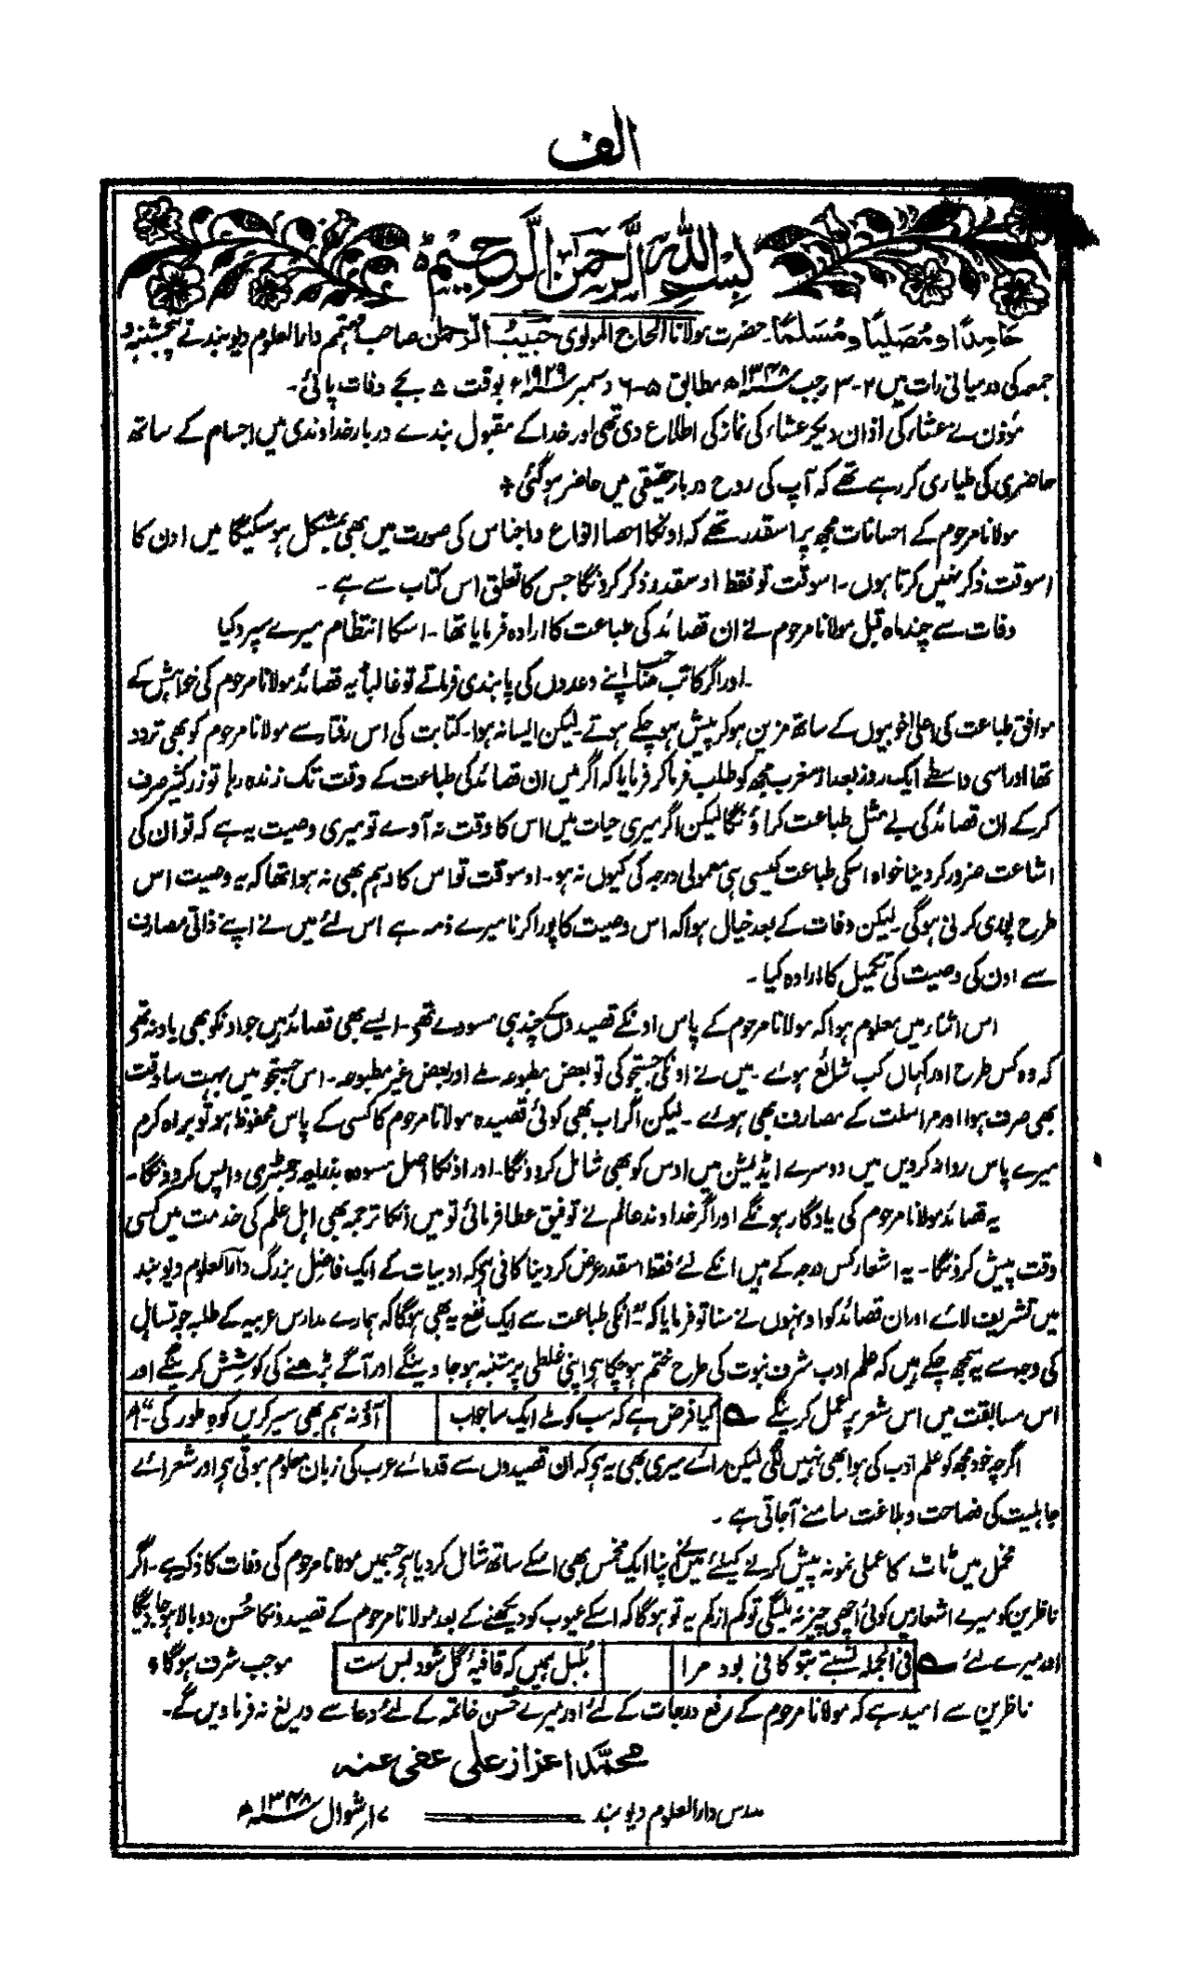 الف
بسم الله الرحمن الرحيم
حَامِدًا و مُصَلِّیًا و مُسَلِّمًا۔ حضرت مولانا الحاج المولوی حبیب الرحمٰن صاحب مہتمم دار العلوم دیوبند نے پنجشنبہ و
جمعہ کی درمیانی رات میں ۲-۳ رجب ۱۳۴۸ھ مطابق ۵-۶ دسمبر ۱۹۲۹ء بوقت ۸ بجے وفات پائی۔
مؤذن نے عشاء کی اذان دیکر عشاء کی نماز کی اطلاع دی تھی اور خدا کے مقبول بندے دربار خداوندی میں اجسام کے ساتھ
حاضری کی طیاری کر رہے تھے کہ آپ کی روح دربار حقیقی میں حاضر ہو گئی
مولانا مرحوم کے احسانات مجھ پر اسقدر تھے کہ اونکا احصا انواع و اجناس کی صورت میں بھی بمشکل ہو سکیگا میں اون کا
اسوقت ذکر نہیں کرتا ہوں۔ اسوقت تو فقط اوسقدر ذکر کرونگا جس کا تعلق اس کتاب سے ہے۔
وفات سے چند ماہ قبل مولانا مرحوم نے ان قصائد کی طباعت کا ارادہ فرمایا تھا۔ اسکا انتظام میرے سپرد کیا
اور اگر کاتب صاحب اپنے وعدوں کی پابندی فرماتے تو غالباً یہ قصائد مولانا مرحوم کی خواہش کے
موافق طباعت کی اعلیٰ خوبیوں کے ساتھ مزین ہو کر پیش ہو چکے ہوتے۔ لیکن ایسا نہ ہوا۔ کتابت کی اس رفتار سے مولانا مرحوم کو بھی تردد
تھا اور اسی واسطے ایک روز بعد از مغرب مجھ کو طلب فرما کر فرمایا کہ اگر میں ان قصائد کی طباعت کے وقت تک زندہ رہا تو زر کثیر صرف
کر کے ان قصائد کی بے مثل طباعت کراؤنگا لیکن اگر میری حیات میں اس کا وقت نہ آوے تو میری وصیت یہ ہے کہ تو ان کی
اشاعت ضرور کر دینا خواہ اسکی طباعت کیسی ہی معمولی درجہ کی کیوں نہ ہو۔ اوسوقت تو اس کا وہم بھی نہ ہوا تھا کہ یہ وصیت اس
طرح پوری کرنی ہوگی۔ لیکن وفات کے بعد خیال ہوا کہ اس وصیت کا پورا کرنا میرے ذمہ ہے اس لئے میں نے اپنے ذاتی مصارف
سے اون کی وصیت کی تکمیل کا ارادہ کیا۔
اس اثناء میں معلوم ہوا کہ مولانا مرحوم کے پاس اونکے قصیدوں کے چند ہی مسودے تھے۔ ایسے بھی قصائد ہیں جو اونکو بھی یاد نہ تھے
کہ وہ کس طرح اور کہاں کب شائع ہوئے۔ میں نے اونکی جستجو کی تو بعض مطبوعہ ملے اور بعض غیر مطبوعہ۔ اس جستجو میں بہت سا وقت
بھی صرف ہوا اور مراسلت کے مصارف بھی ہوئے۔ لیکن اگر اب بھی کوئی قصیدہ مولانا مرحوم کا کسی کے پاس محفوظ ہو تو براہ کرم
میرے پاس روانہ کر دیں میں دوسرے ایڈیشن میں اوس کو بھی شامل کر دونگا۔ اور اونکا اصل مسودہ بذریعہ رجسٹری واپس کر دونگا۔
یہ قصائد مولانا مرحوم کی یادگار ہونگے اور اگر خداوند عالم نے توفیق عطا فرمائی تو میں انکا ترجمہ بھی اہل علم کی خدمت میں کسی
وقت پیش کرونگا۔ یہ اشعار کس درجہ کے ہیں انکے لئے فقط اسقدر عرض کر دینا کافی ہے کہ ادبیات کے ایک فاضل بزرگ دار العلوم دیوبند
میں تشریف لائے اور ان قصائد کو اونہوں نے سنا تو فرمایا کہ ”انکی طباعت سے ایک نفع یہ بھی ہوگا کہ ہمارے مدارس عربیہ کے طلبہ جو تساہل
کی وجہ سے یہ سمجھ چکے ہیں کہ علم ادب شرف نبوت کی طرح ختم ہو چکا ہے اپنی غلطی پر متنبہ ہو جاوینگے اور آگے بڑھنے کی کوشش کرینگے اور
اس مسابقت میں اس شعر پر عمل کرینگے کیا فرض ہے کہ سب کو ملے ایک سا جواب آؤ نہ ہم بھی سیر کریں کوہ طور کی“
اگرچہ خود مجھ کو علم ادب کی ہوا بھی نہیں لگی لیکن رائے میری بھی یہ ہے کہ ان قصیدوں سے قدمائے عرب کی زبان معلوم ہوتی ہے اور شعرائے
جاہلیت کی فصاحت و بلاغت سامنے آجاتی ہے۔
مخمل میں ٹاٹ کا عملی نمونہ پیش کرنے کیلئے میں نے اپنا ایک مخمس بھی اسکے ساتھ شامل کر دیا ہے جسمیں مولانا مرحوم کی وفات کا ذکر ہے۔ اگر
ناظرین کو میرے اشعار میں کوئی اچھی چیز نہ ملیگی تو کم از کم یہ تو ہوگا کہ اسکے عیوب کو دیکھنے کے بعد مولانا مرحوم کے قصیدوں کا حُسن دو بالا ہو جاویگا
اور میرے لئے فی الجملہ نسبتے بتو کافی بود مرا بُلبل ہمیں کہ قافیہ گل شود بس ست موجب شرف ہوگا
ناظرین سے امید ہے کہ مولانا مرحوم کے رفع درجات کے لئے اور میرے حُسن خاتمہ کے لئے دعا سے دریغ نہ فرماویں گے۔
محمد اعزاز علی عفی عنہ
مدرس دار العلوم دیوبند ۱۷ شوال ۱۳۴۸ھ